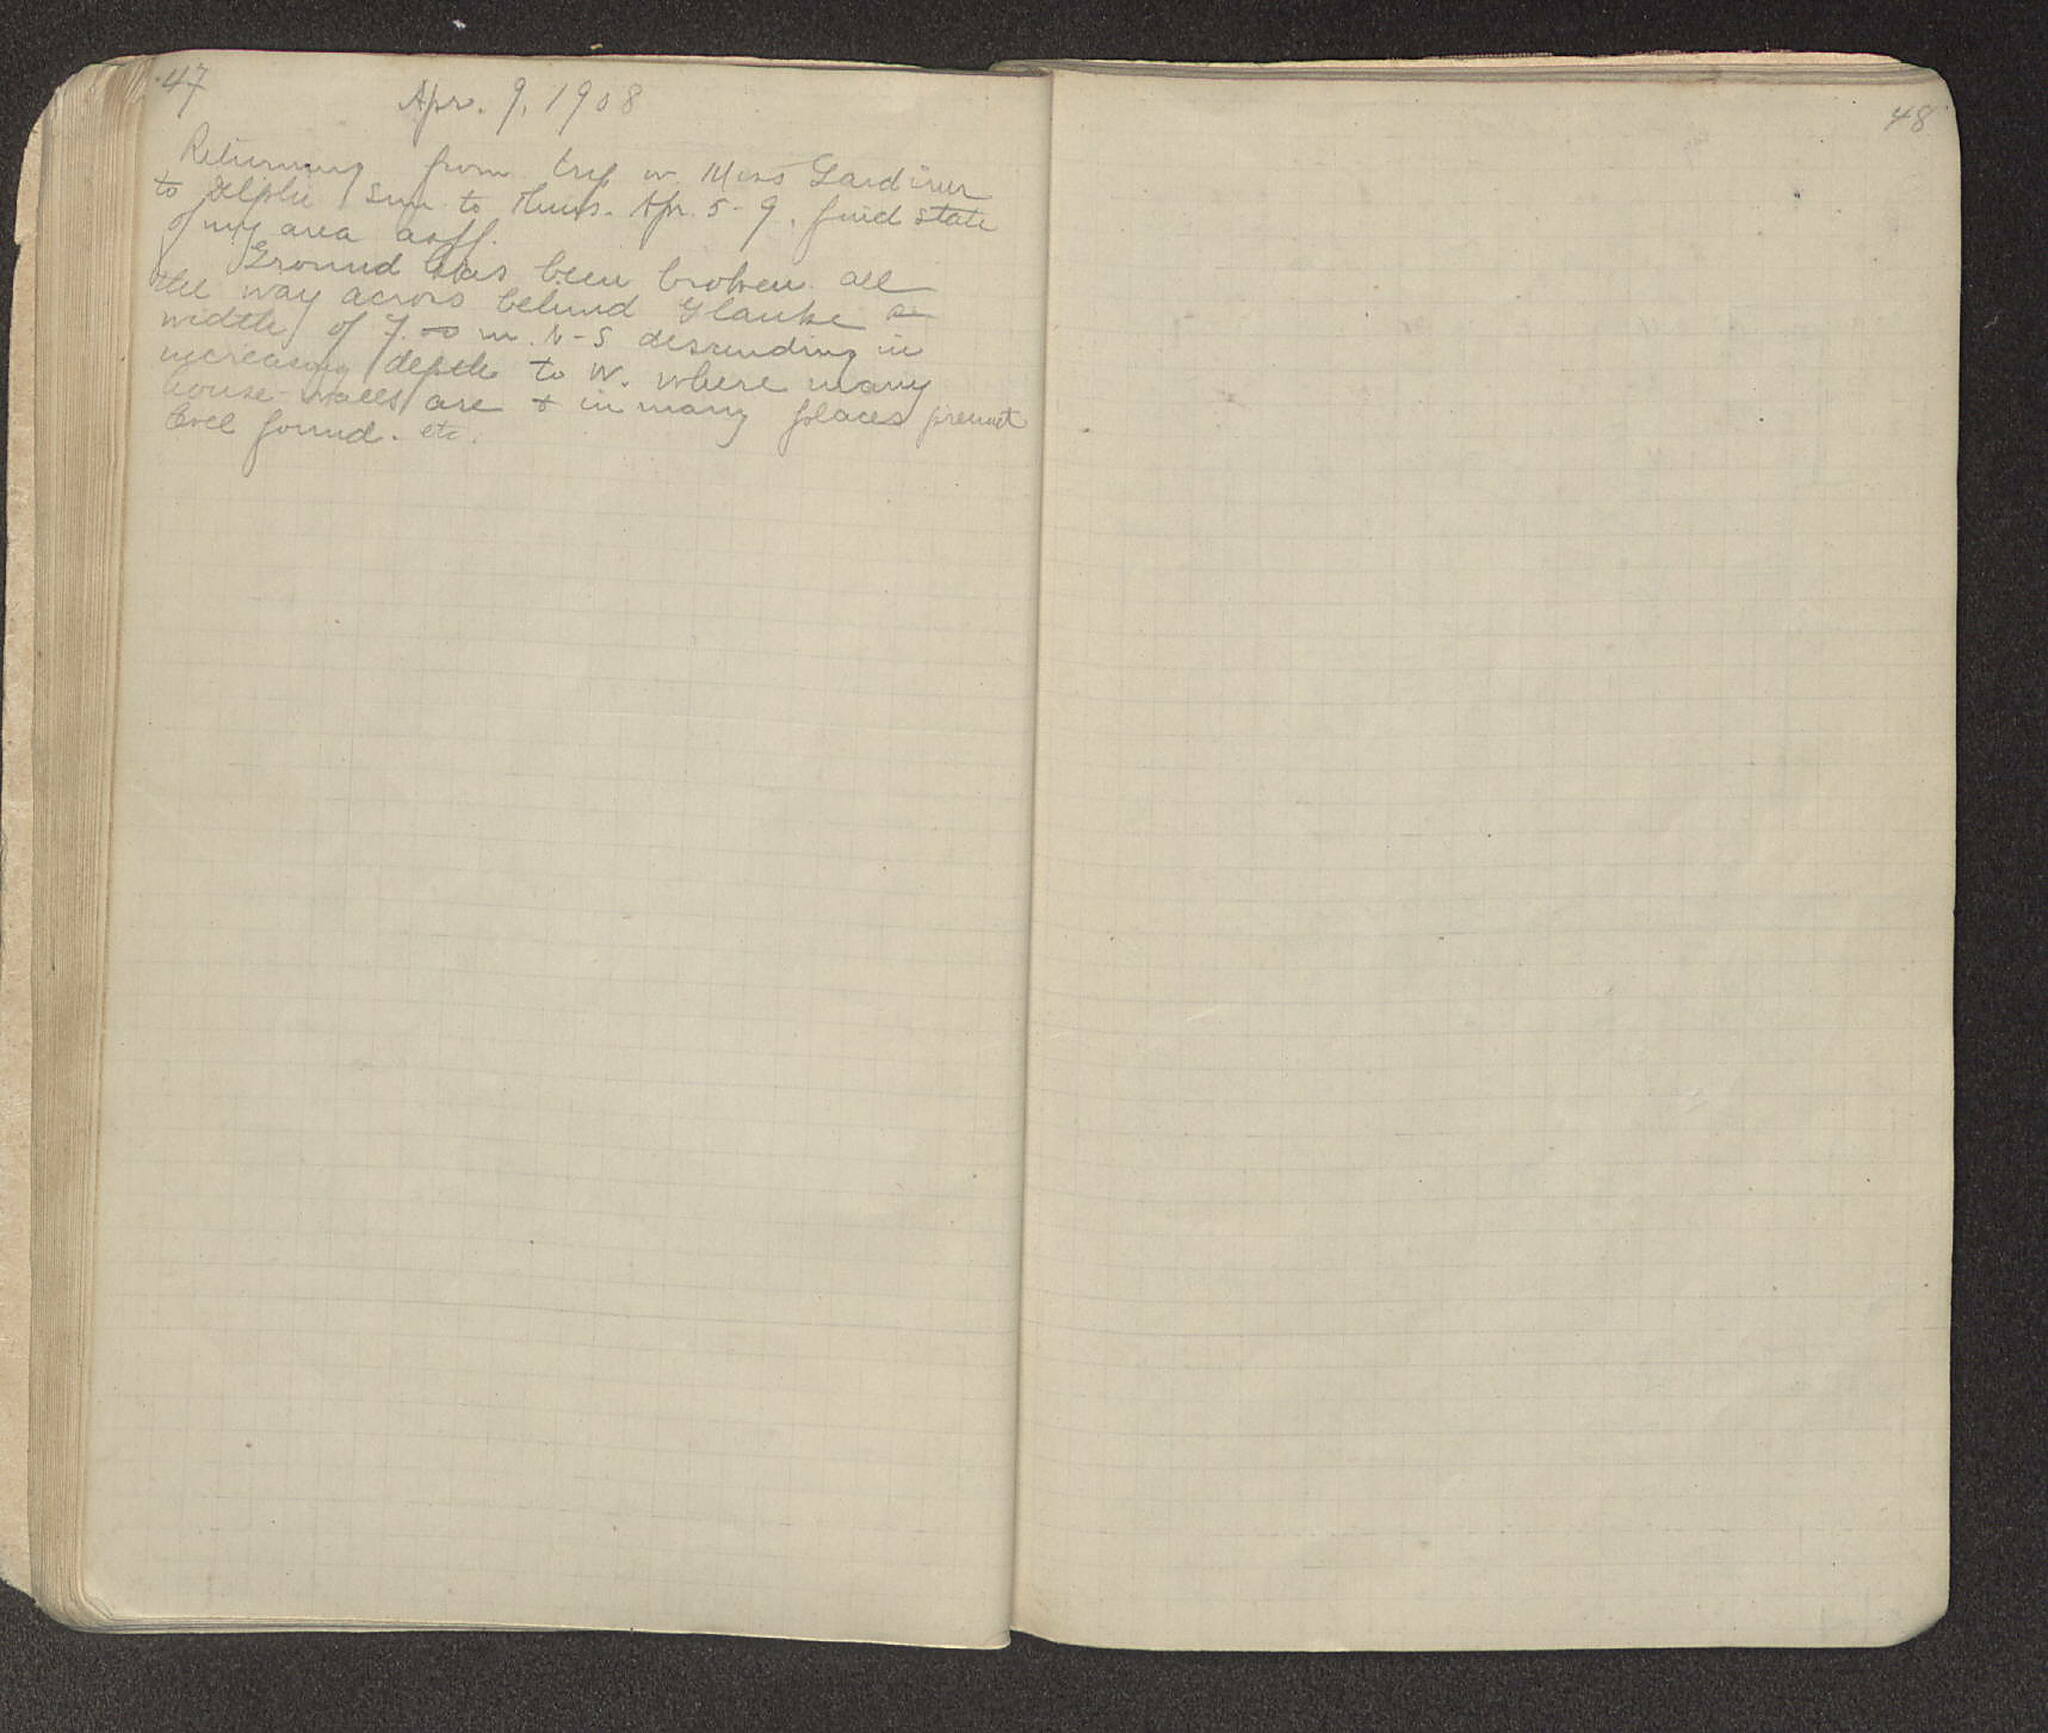 47
Apr. 9, 1908
Returning from trip w. Miss Gardiner
to Delphi Sun. to Thurs. Apr. 5-9. find state
of my area as ff.
Ground has been broken all
the way across behind Glauke
width of 7.00 m. N-S descending in
increasing depth to W. where many
house-walls are & in many places
level found. etc.
48